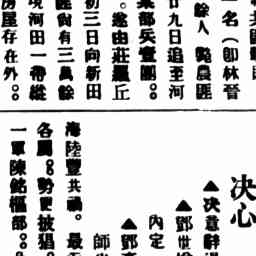 名（即林晉
餘人　竄農匪
廿九日追至河
某部兵壹團。。
。逸由莊羅丘
初三日向新田
匪尙有三萬餘
境河田一帶縱
房屋存在外。。
决心
▲决意辭
▲鄧世
內定
▲鄧
師
海陸豐共禍。最
各屬。勢更披猖。
一軍陳銘樞部。。